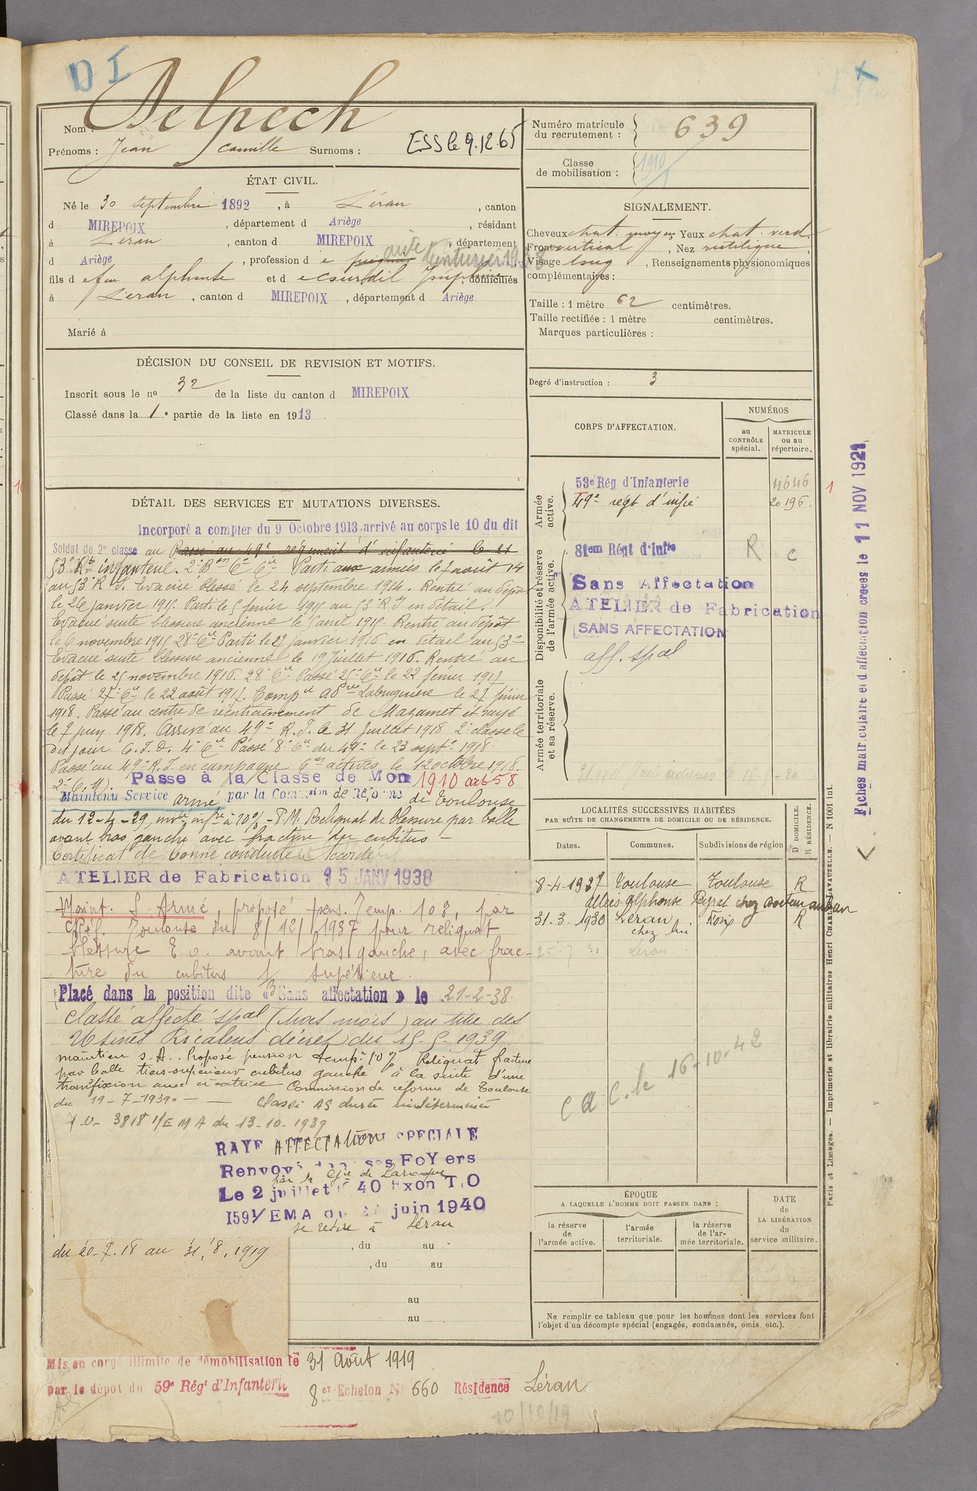 D I
Nom : Delpech
Prénoms : Jean Camille Surnoms : ESS le 9.12.65
ÉTAT CIVIL.
Né le 30 septembre 1892, à Léran, canton
d MIREPOIX, département d Ariège, résidant
à Léran, canton d MIREPOIX, département
d Ariège, profession d
fils d e feu alphonse et d e domiciliés
à Léran, canton d MIREPOIX, département d Ariège
Marié à
DÉCISION DU CONSEIL DE REVISION ET MOTIFS.
Inscrit sous le no 32 de la liste du canton d MIREPOIX
Classé dans la 1e partie de la liste en 1913
DÉTAIL DES SERVICES ET MUTATIONS DIVERSES.
Incorporé a compter du 9 Octobre 1913, arrivé au corps le 10 du dit
Soldat de 2e classe au Passé au 49e régiment d'infanterie le 21
53e Rt infanterie. 2e Bon 6e Cie Parti aux armées le 5 août 14
au 53e R.I. Evacué blessé le 24 septembre 1914. Rentré au dépôt
le 26 janvier 1915. Parti le 5 février 1915 au 53e R.I en détail.
Evacué suite blessure ancienne le 5 avril 1915. Rentré au dépôt
le 6 novembre 1915 28e Cie Parti le 29 janvier 1916 en détail au 53e
Evacué suite blessure ancienne le 19 juillet 1916. Rentré au
dépôt le 25 novembre 1916. 28e Cie Passé 25e Cie le 22 février 1917
Passé 27e Cie le 22 août 1917. Labruguière le 27 février
1918. Passé au centre de réentrainement de Mazamet
le 7 juin 1918. Arrivé au 49e R.I. le 31 juillet 1918 2e classe le
dit jour C.I.D. 4e Cie Passé 8e Cie du 49e le 23 septe 1918
Passé au 49e R.I en campagne 6e actives, le 12 octobre 1918.
Passé à la Classe de Mon 1910 art 58
Maintenu Service armé par la Commission de Réforme de Toulouse
du 12-4-29, invté infre à 10% - P.M. Reliquat de blessure par balle
avant bras gauche avec fracture du cubitus -
Certificat de bonne conduite accordé
ATELIER de Fabrication 15 JANV 1938
Maint. S. Armé, proposé pens. Temp. 10%, par
Toulouse du 8/12/1937 pour reliquat
blessure E.O. avant bras gauche, avec frac-
ture du cubitus 1/3 supérieur.
Placé dans la position dite « Sans affectation » le 21-2-38
Classé affecté spal (trois mois) au titre des
Usines Ricalens décret du 15-5-1939
maintien S.A. Proposé pension temp. 10% Reliquat fracture
par balle tiers supérieur cubitus gauche à la suite d'une
transfixion avec cicatrice Commission de réforme de Toulouse
du 19-7-1939 - Classé AS durée indéterminée
D.O. 3818 1/EMA du 13-10-1939
RAYE AFFECTATION SPECIALE
Renvoyé dans ses FOYers
Le 2 juillet 1940 Exon T.O
159 1/EMA du 24 juin 1940
se retire à Léran
du 20-7-18 au 31/8/1919
, du au
, du au
au
au
Mis en congé illimité de démobilisation le 31 Août 1919
par le dépôt du 59e Régt d'Infanterie 8er Echelon No 660 Résidence Léran
10/10/19
Numéro matricule du recrutement : 639
Classe de mobilisation : 1910
SIGNALEMENT.
Cheveux chat. moyen Yeux chat. verd.
Front vertical, Nez rectiligne
Visage long, Renseignements physionomiques
complémentaires :
Taille : 1 mètre 62 centimètres.
Taille rectifiée : 1 mètre centimètres.
Marques particulières :
Degré d'instruction : 3
CORPS D'AFFECTATION.
NUMÉROS
au CONTRÔLE spécial.
MATRICULE ou au répertoire.
Armée active.
53e Rég d'Infanterie 4646
49e régt d'infie 20196
Disponibilité et réserve de l'armée active.
81em Régt d'Infie R c
Sans Affectation
ATELIER de Fabrication
SANS AFFECTATION
aff. spal
Armée territoriale et sa réserve.
LOCALITÉS SUCCESSIVES HABITÉES
PAR SUITE DE CHANGEMENTS DE DOMICILE OU DE RÉSIDENCE.
Dates. Communes. Subdivisions de région
D DOMICILE. R RÉSIDENCE.
8-4-1927 Toulouse Toulouse R
31.3.1930 Léran Foix R
chez lui
C a C. le 16-10-42
ÉPOQUE
A LAQUELLE L'HOMME DOIT PASSER DANS :
la réserve de l'armée active.
l'armée territoriale.
la réserve de l'armée territoriale.
DATE de LA LIBÉRATION du service militaire.
Ne remplir ce tableau que pour les hommes dont les services font
l'objet d'un décompte spécial (engagés, condamnés, omis, etc.).
Fiches matriculaire et d'affectation créées le 11 NOV 1921
Paris et Limoges. — Imprimerie et librairie militaires Henri CHARLES-LAVAUZELLE. — N 1001 int.